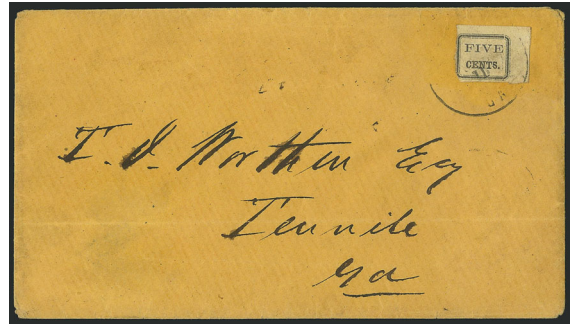 FIVE
CENTS.
GA
T. J. Worthen Esq
Tennile
Ga